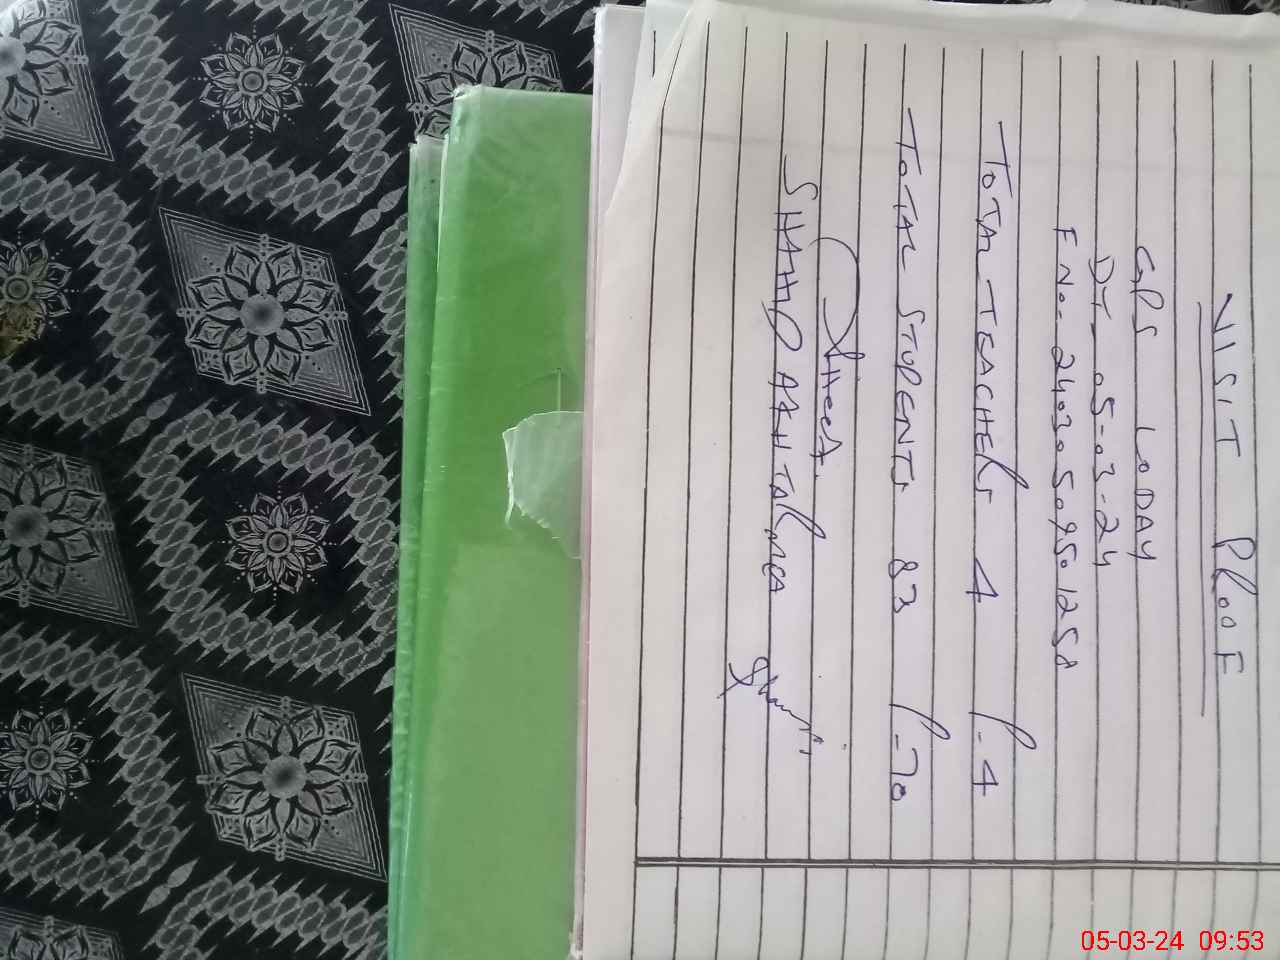 VISIT PROOF
GPS LODAY
DT- 05-03-24
F No- 24030509501258
TOTAL TEACHERS 4 P-4
TOTAL STUDENTS 83 P-70
SHAHID AKHTAR
05-03-24 09:53